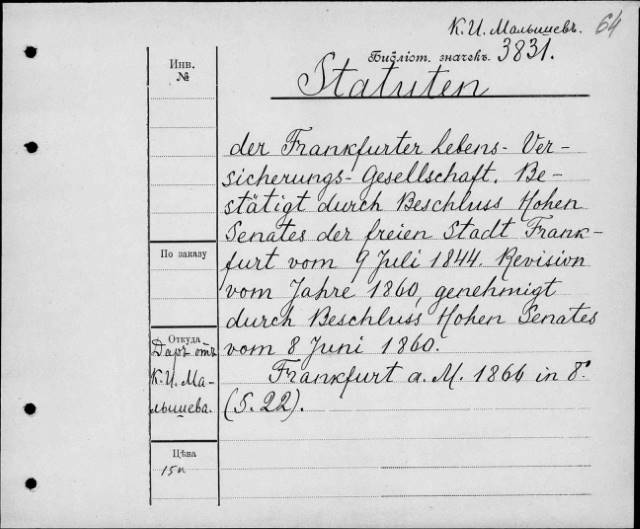 К.И. Малышевъ. 64
Библіот. значекъ. 3831.
Statuten
Инв.
№
der Frankfurter Lebens-Ver-
sicherungs-Gesellschaft. Be-
stätigt durch Beschluss Hohen
Senates der freien Stadt Frank-
furt vom 9 Juli 1844. Revision
vom Jahre 1860, genehmigt
durch Beschluss Hohen Senates
vom 8 Juni 1860.
Frankfurt a. M. 1866 in 8.°
(S. 22).
По заказу
Откуда
Даръ отъ
К.И. Ма-
лышева.
Цѣна
15к